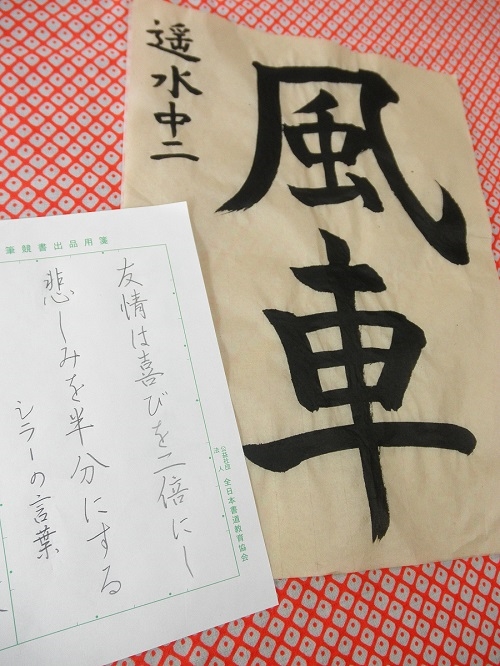 風車
遥水中二
筆競書出品用箋
友情は喜びを二倍にし
悲しみを半分にする
シラーの言葉
公益社団法人 全日本書道教育協会